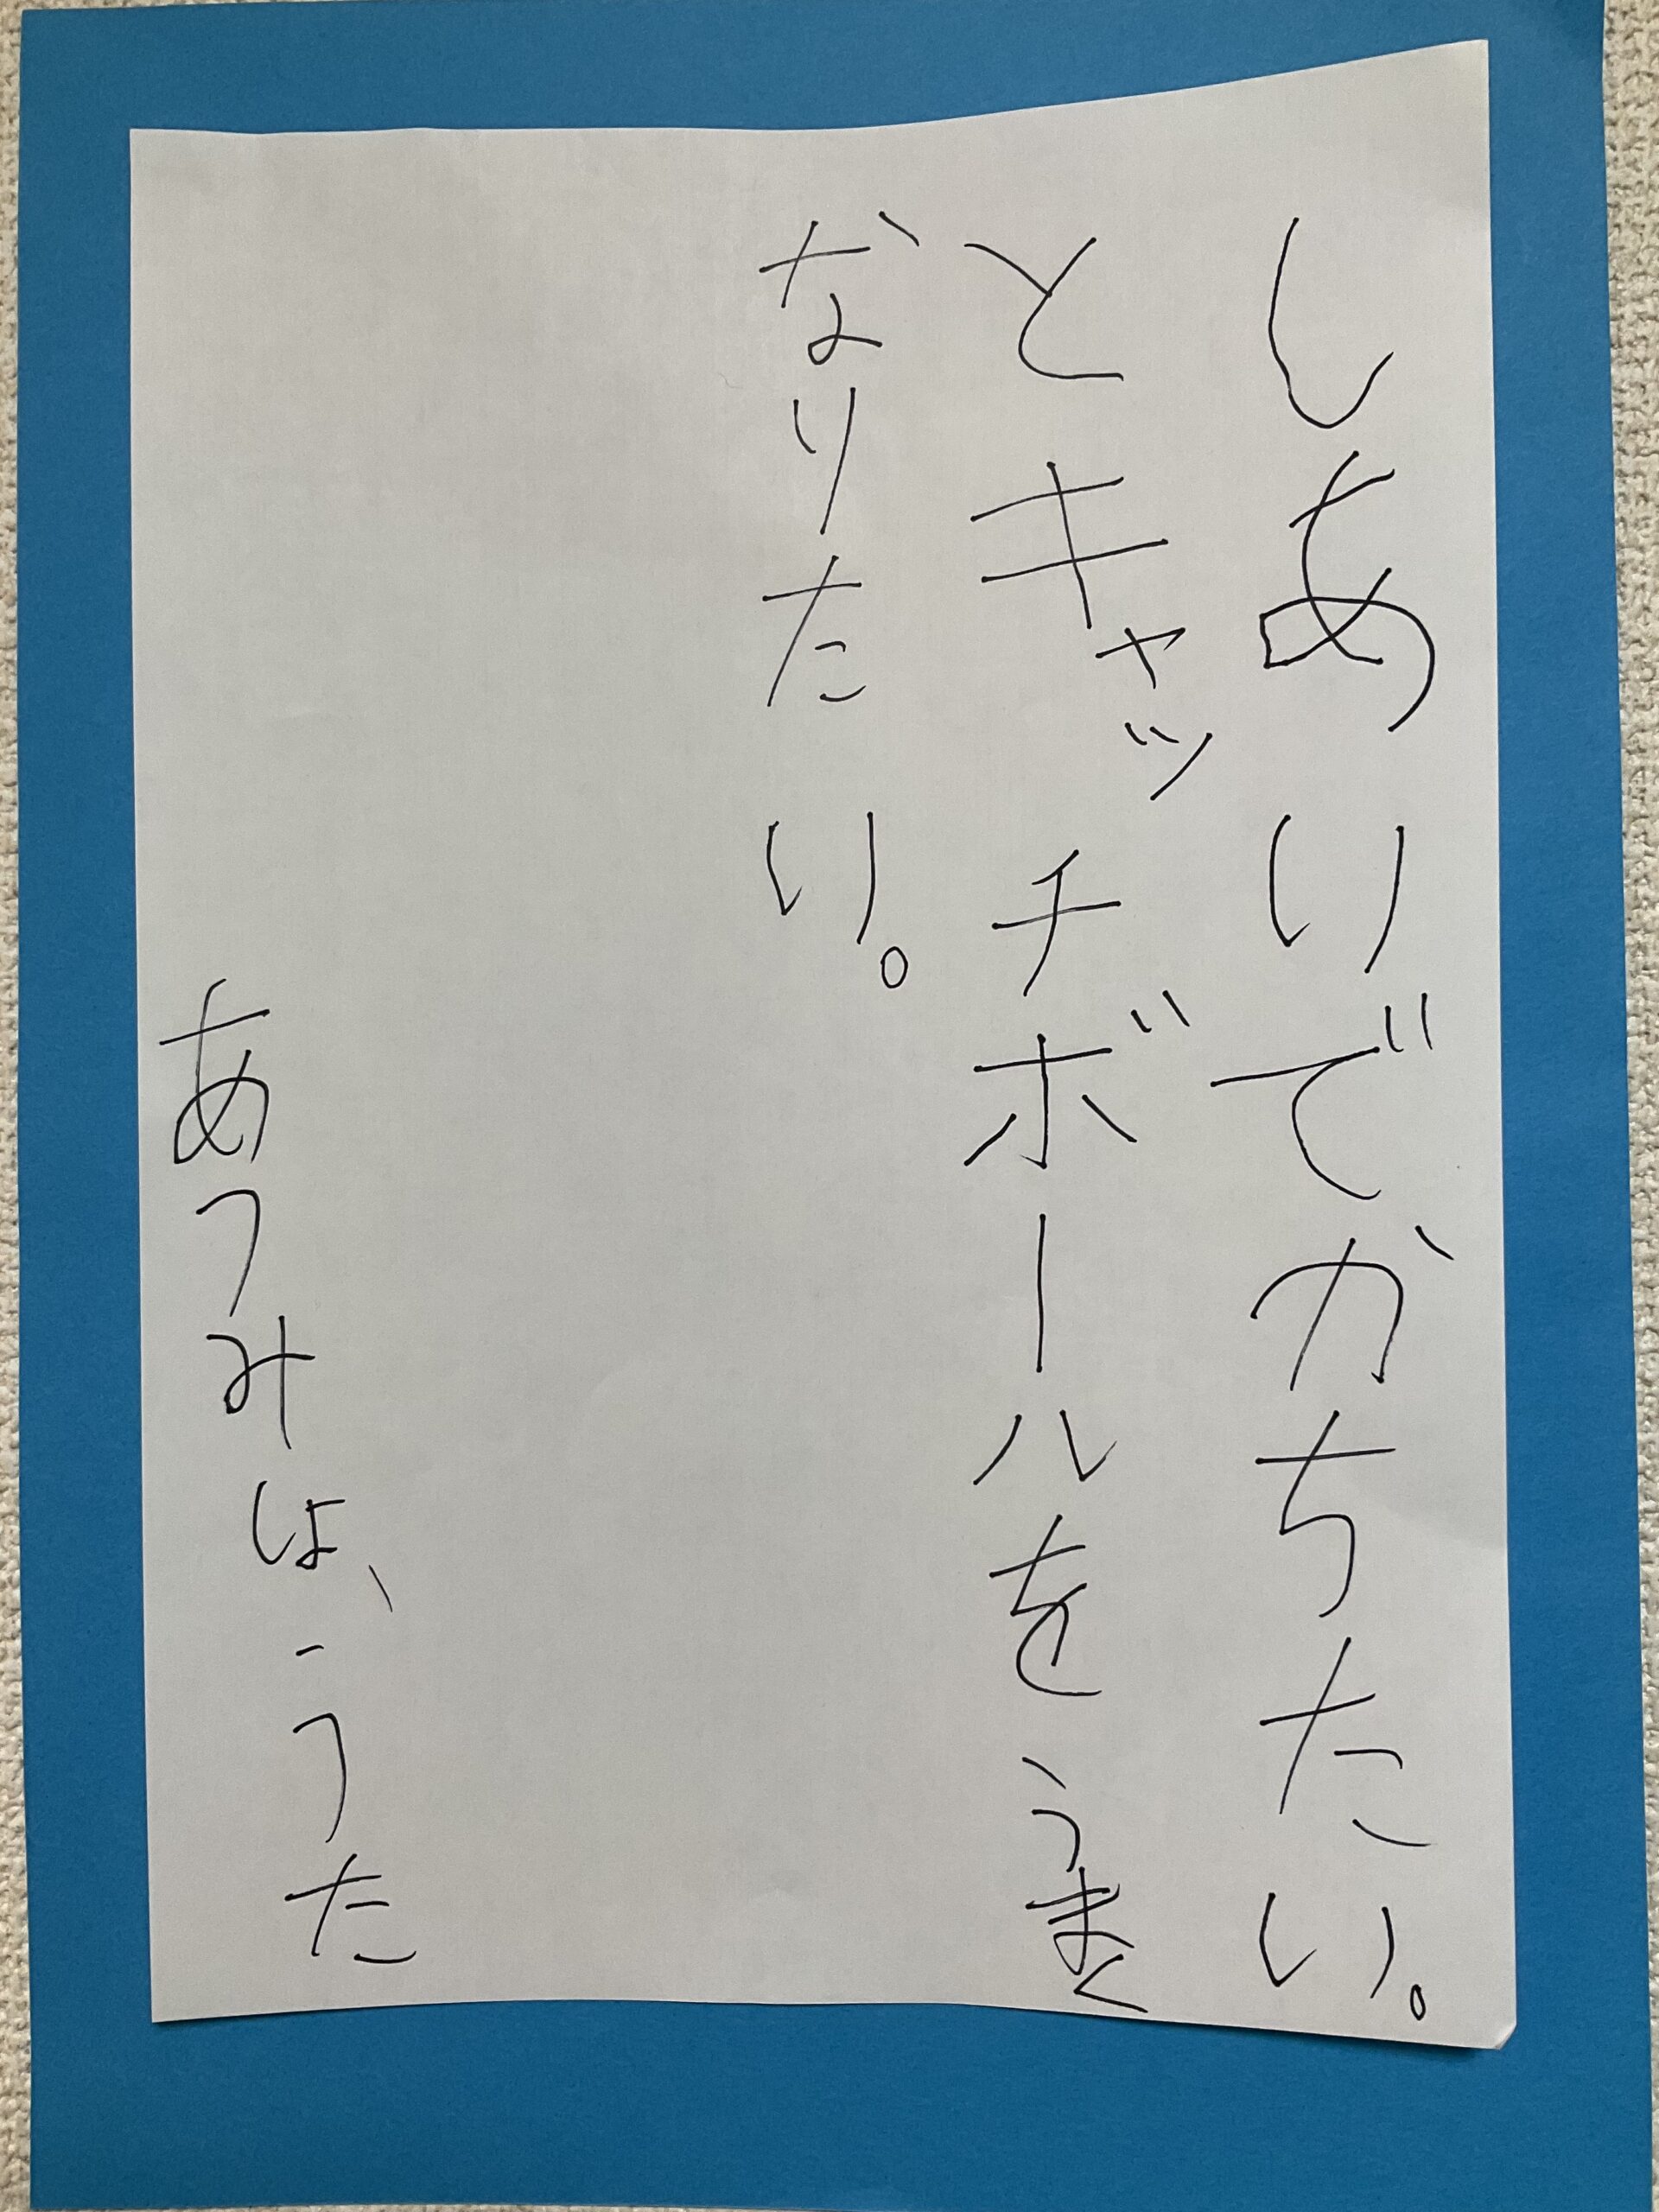 しあいでかちたい。
とキャッチボールをうまく
なりたい。
あつみしょうた